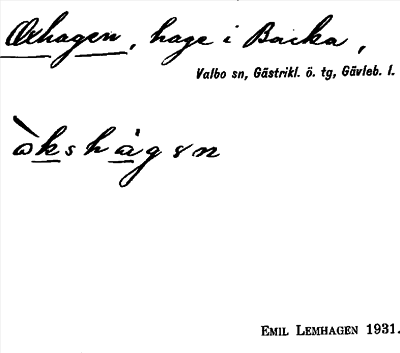 Oxhagen, hage i Backa,
Valbo sn, Gästrikl. ö. tg, Gävleb. l.
EMIL LEMHAGEN 1931.